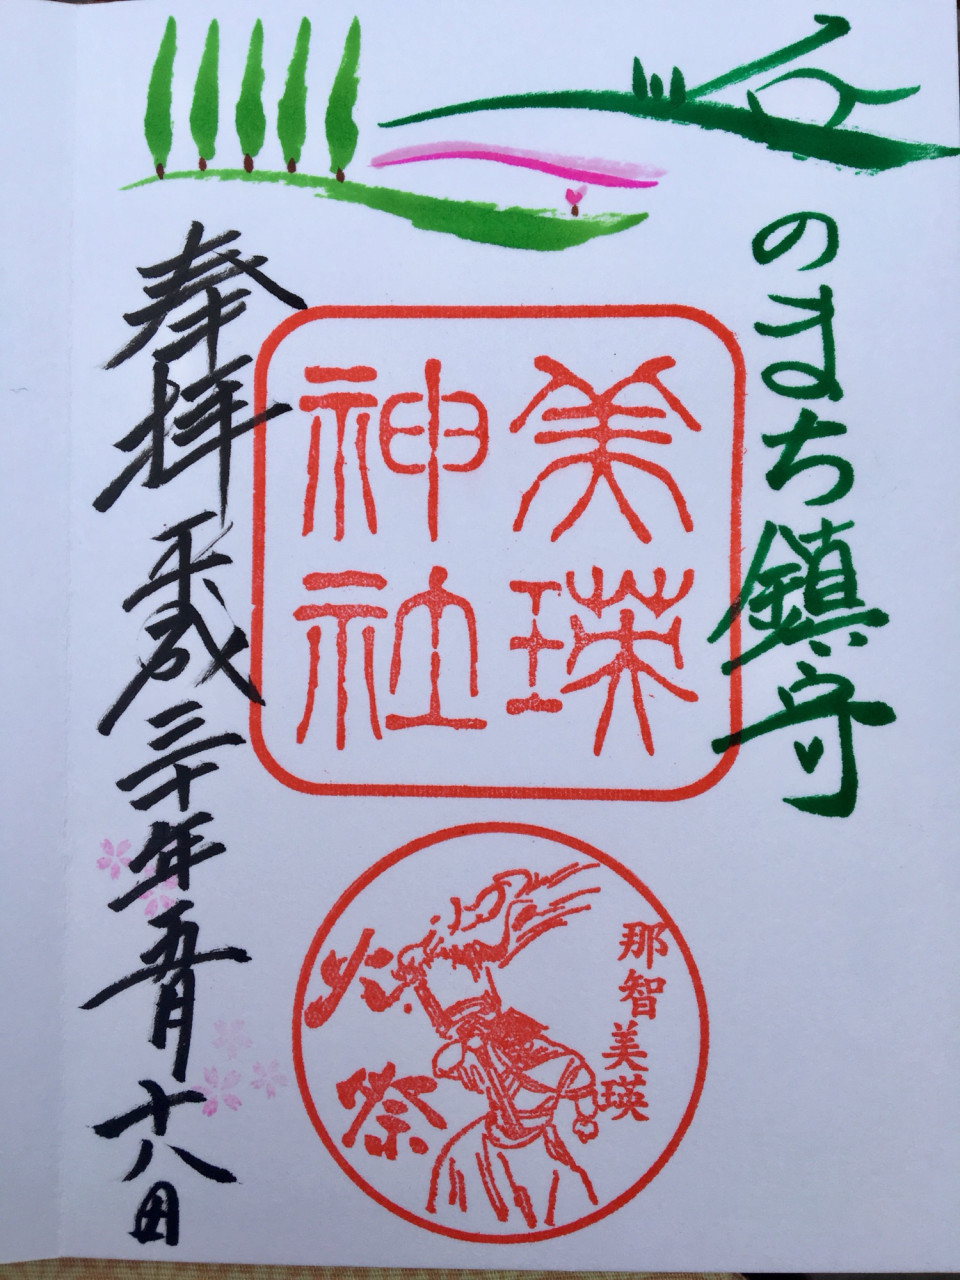 丘のまち鎮守
美瑛
神社
那智美瑛
火祭
奉拝 平成三十年五月十八日